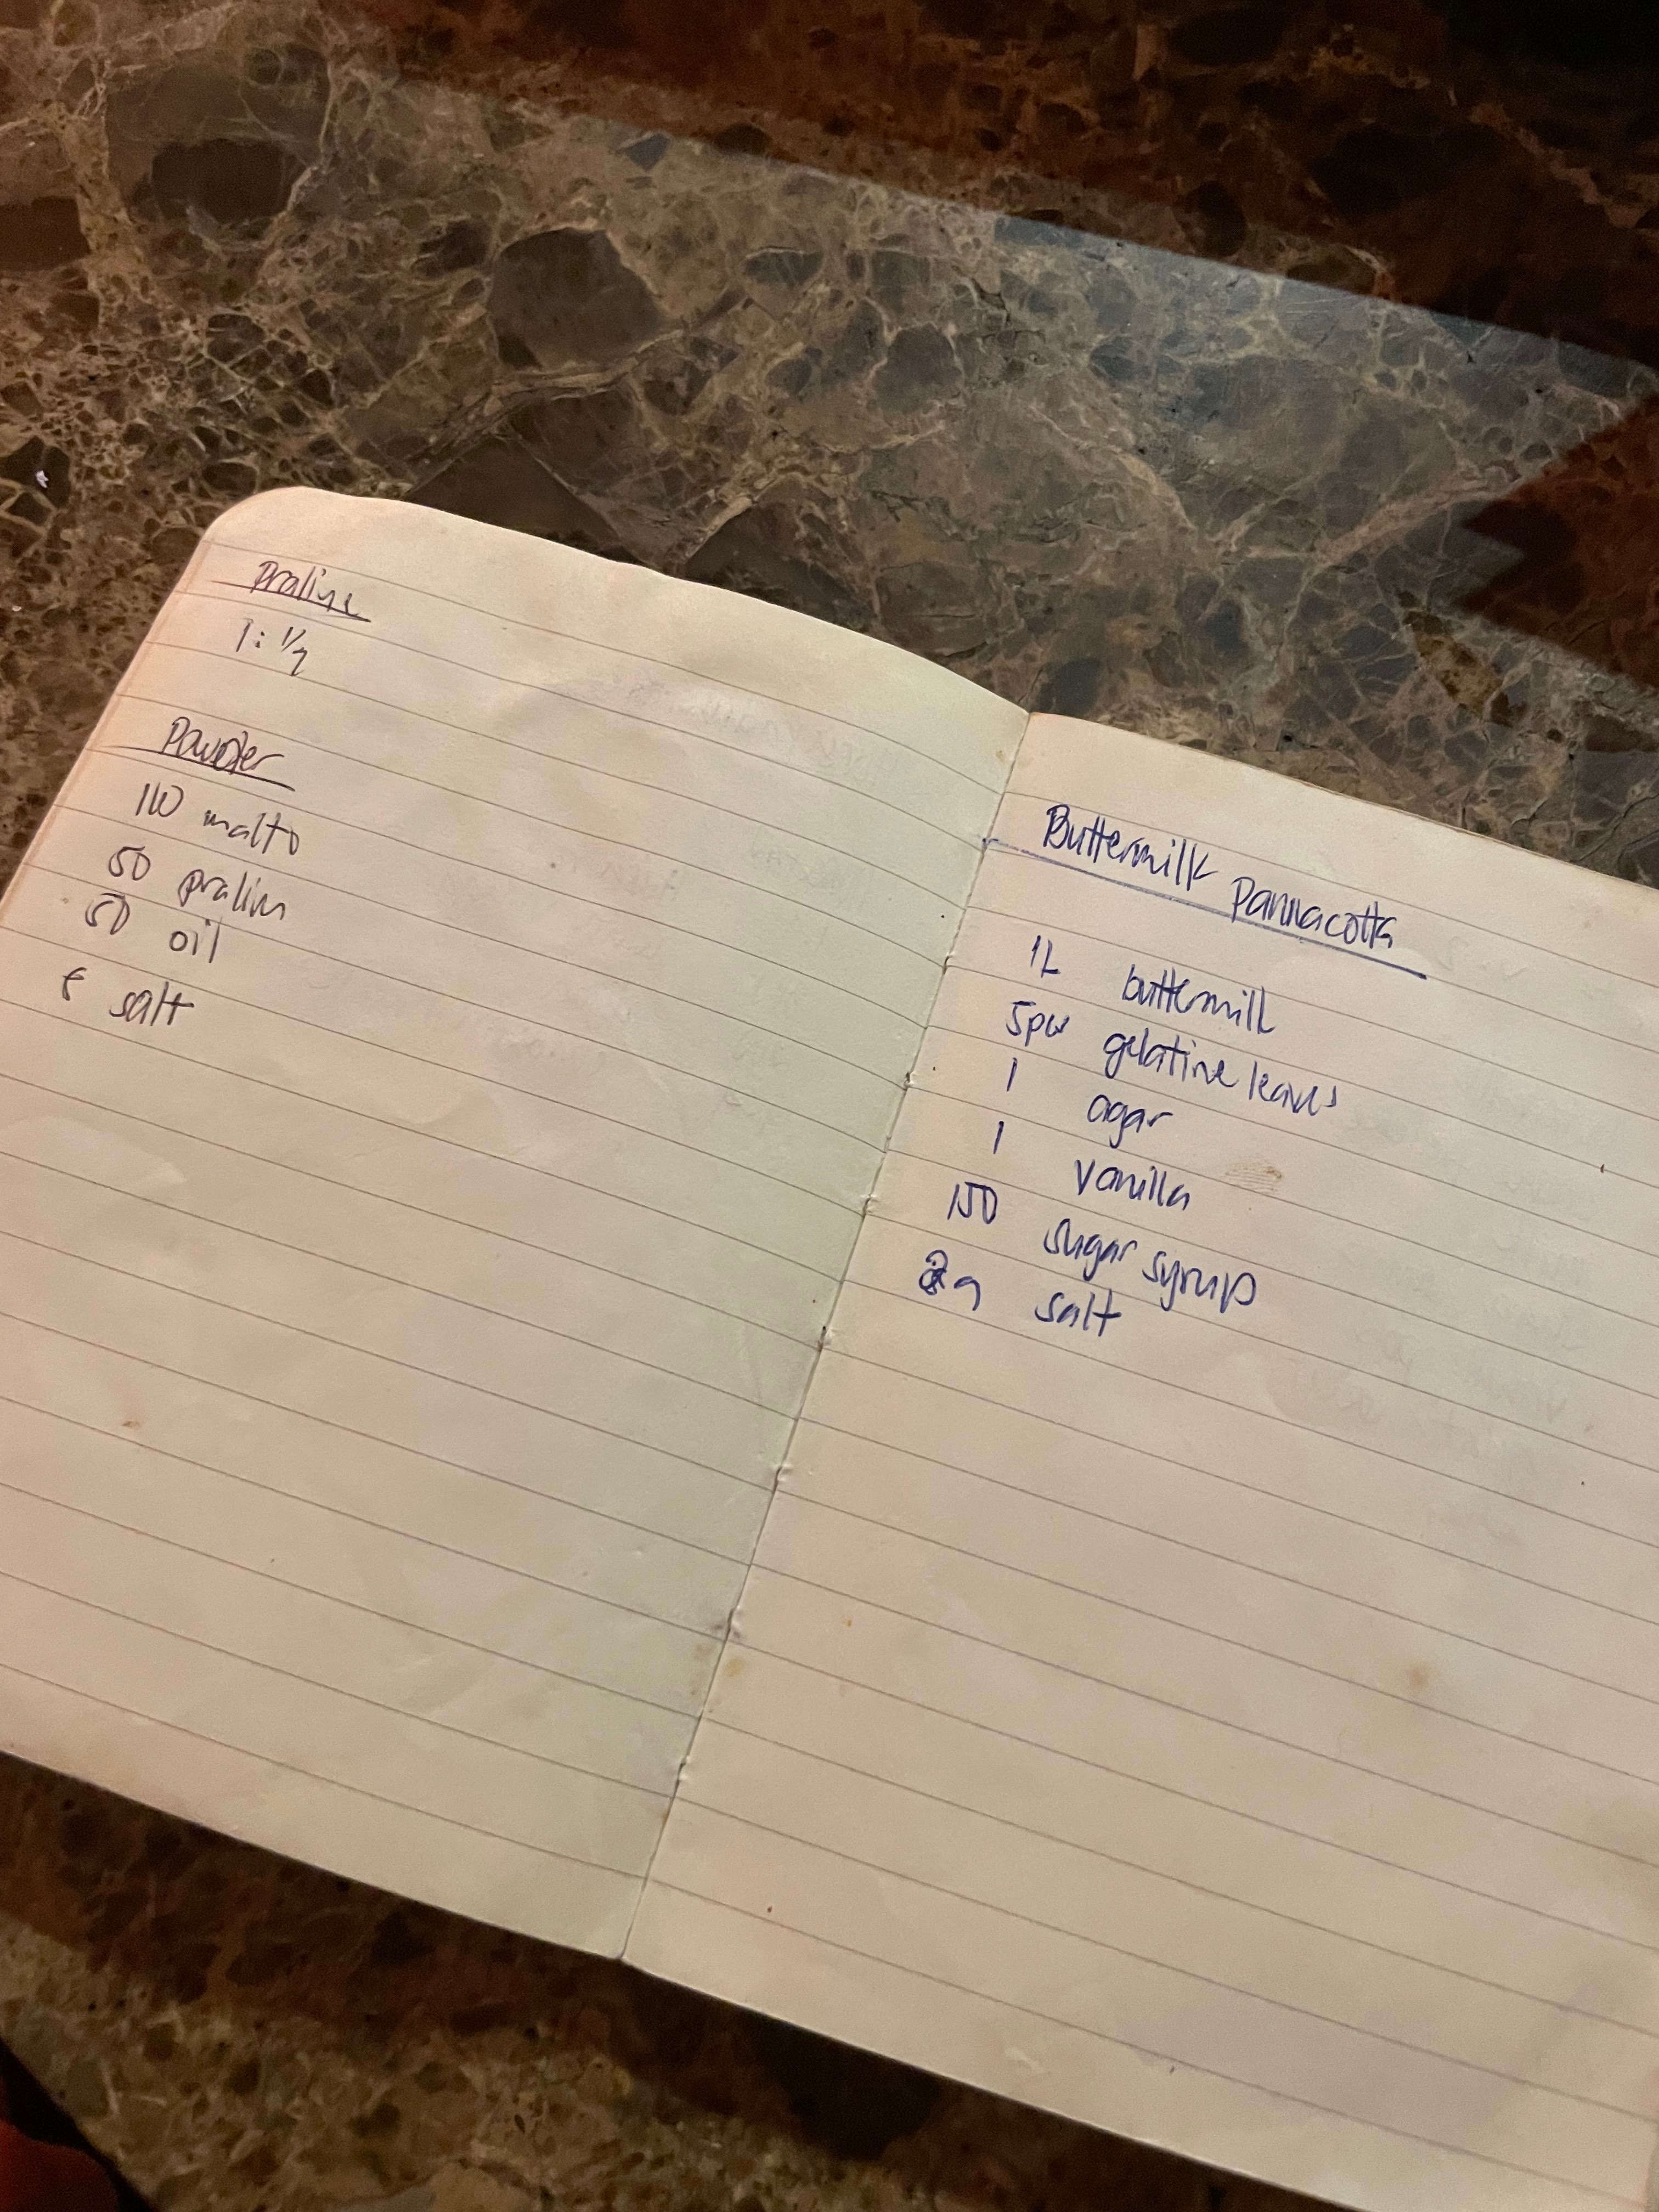 Praline
1:
Powder
malto
50 pralin
50 oil
salt
Buttermilk Pannacotta
1L buttermilk
gelatine leaves
1 agar
1 vanilla
150 sugar syrup
salt